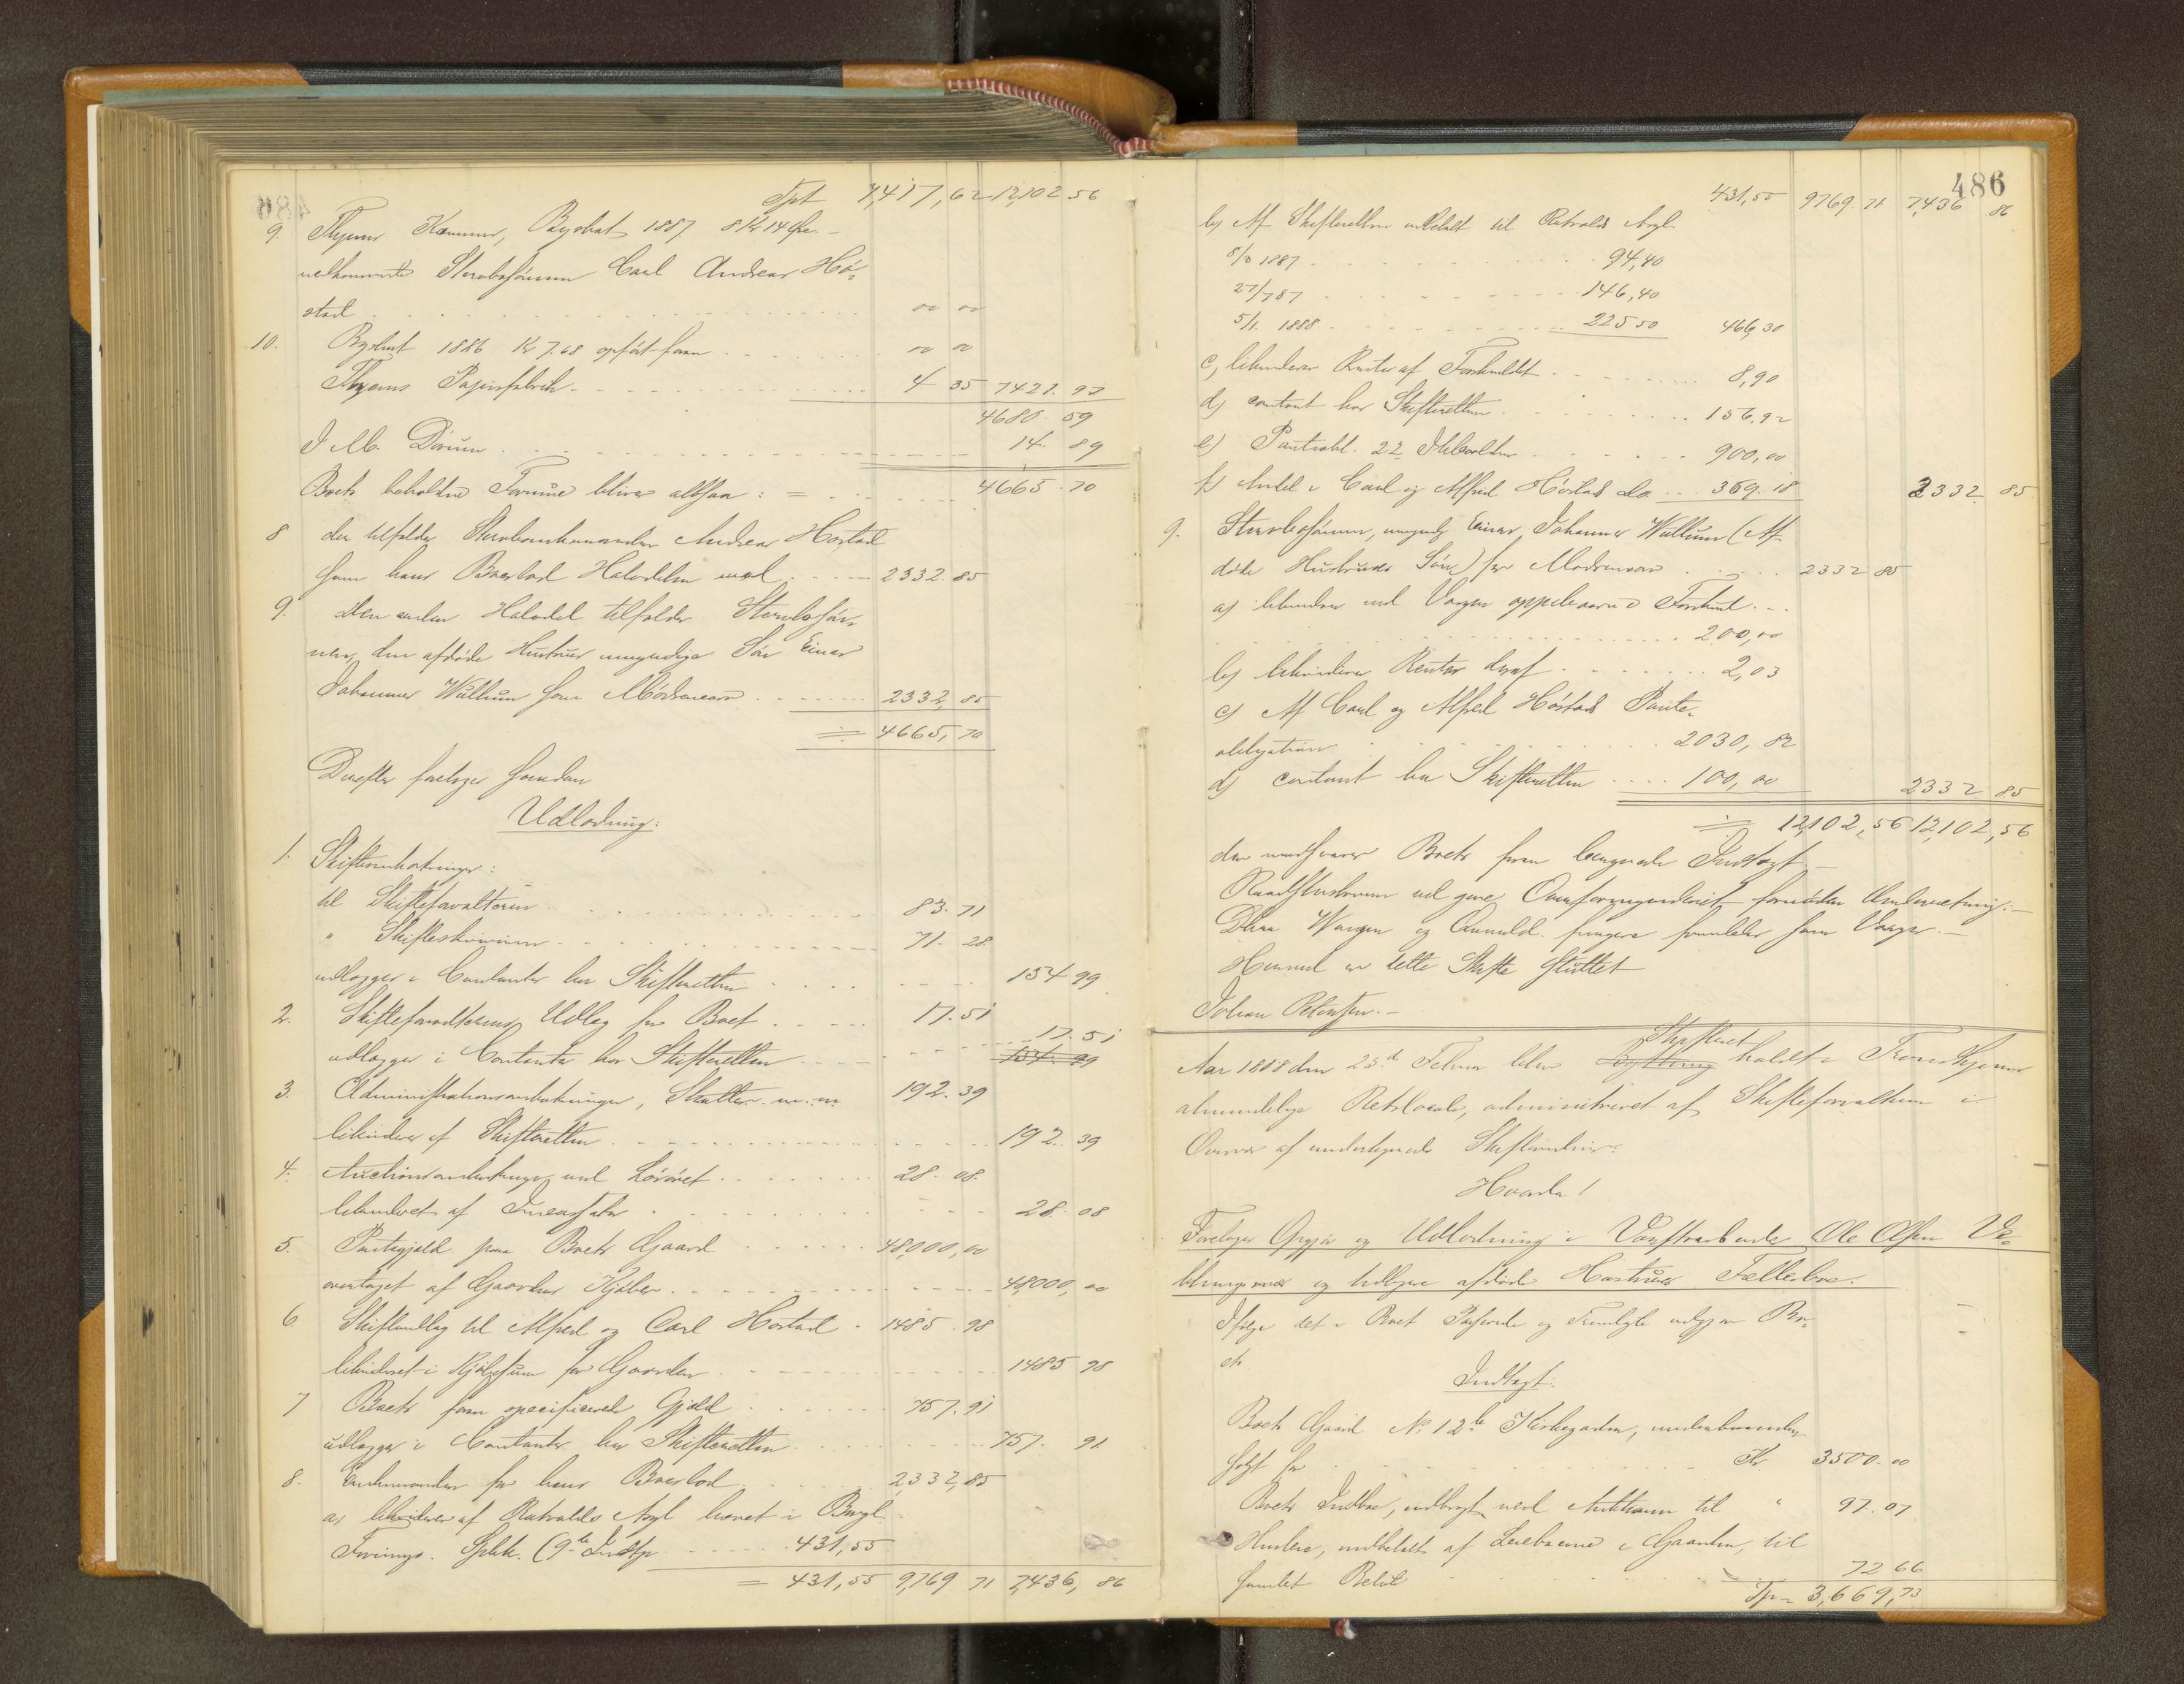 Tpt 7,417,62 12,102 56
9. Thjems Kæmner, Byskat 1887 8 Kr 14 Øre
vedkommende Stervbosønnen Carl Andreas Hø-
stad 00 00
10. Byskat 1886 Kr 7.68 opført foran 00 00
Thjems Papirfabrik 4 35 7421.97
4680.59
I M. Dørum 14 89
Boets beholdne Formue bliver altsaa: = 4665.70
8 der tilfalder Stervboenkemanden Andreas Høstad
som hans Boeslod Halvdelen med 2332.85
9. Den anden Halvdel tilfalder Stervbosøn-
nen, den afdøde Hustrues umyndige Søn Einar
Johannes Wullum som Mødrenearv 2332,85
= 4665,70
Derefter foretoges saadan
Udlodning:
1. Skifteomkostninger:
til Skifteforvalteren 83.71
" Skifteskriveren 71.28
udlægges i Contanter hos Skifteretten 154 99
2. Skifteforvalterens Udlæg for Boet 17.51
udlægges i Contanter hos Skifteretten 17.51
154.99
3. Administrationsomkostninger, Skatter m.m. 192.39
likvideres af Skifteretten 192.39
4. Auctionsomkostninger ved Løsøret 28.08
likvideret af Incassator 28.08
5. Pantegjæld paa Boets Gaard 48,000,00
overtaget af Gaardens Kjøber 48,000,00
6 Skifteudlæg til Alfred og Carl Høstad 1485.98
likvideret i Kjøbesum for Gaarden 1485 98
7 Boets foran specificerede Gjæld 757.91
udlægges i Contanter hos Skifteretten 757.91
8. Enkemanden for hans Boeslod 2332,85
a, likvideres af
431,55
= 431,55 9,769 71 7,436,86
486
431,55 9769.71 7,436 86
b) Af Skifteretten udbetalt til
5/3 1887 94,40
27/787 146,40
5/1. 1888 225 50 466,30
c, likvideres Renter af Forskuddet 8,90
d) contant hos Skifteretten 156,92
e) 900,00
f) Andel i Carl og Alfred Høstads do 369.18 2332 85
9. Stervbosønnen, umyndig Einar Johannes Wullum (Af-
døde Hustrues Søn) for Mødrenearv 2332 85
a) likvideres ved Værgen oppebaarne Forskud
200,00
b) likvideres Renter deraf 2,03
c) Af Carl og Alfred Høstads Pante-
obligation 2030,82
d) contant hos Skifteretten 100,00 2332 85
= 12,102,56 12,102,56
der modsvarer Boets foran beregnede Indtægt.
Raadstuskriveren vil give Overformynderiet fornøden Underretning.
Hermed er dette Skifte sluttet
Johan Petersen.
Aar 1888 den 23de Februar blev Skifteret holdt i Trondhjems
almindelige Retslocale, administreret af Skifteforvalteren i
Overvær af undertegnede Skiftevidner.
Hvorda!
Foretoges Opgjør og Udlodning i Ole Olsen
og tidligere afdøde Hustrues Fællesbo.
Ifølge det i Boet Passerede og Fremlagte udgjør Bo-
ets
Indtægt.
Boets Gaard No 12b Kirkegaden,
solgt for Kr. 3500.00
Boets Indbo, udbragt ved Auktion til " 97.07
Husleie, indbetalt af Leieboerne i Gaarden, til
samlet Beløb 72 66
Tpr = 3,669,73